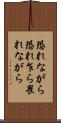 恐れながら
恐れ乍ら畏
れながら